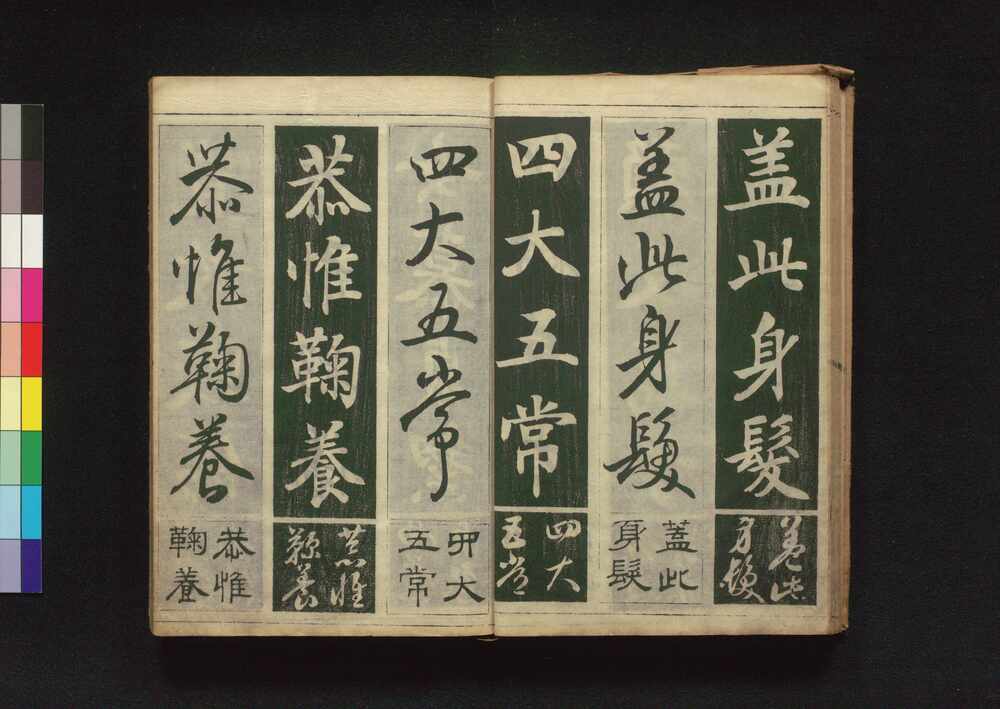 盖此身髮
盖此
身髮
盖此身髮
蓋此
身髮
四大五常
四大
五常
四大五常
四大
五常
恭惟鞠養
恭惟
鞠養
恭惟鞠養
恭惟
鞠養